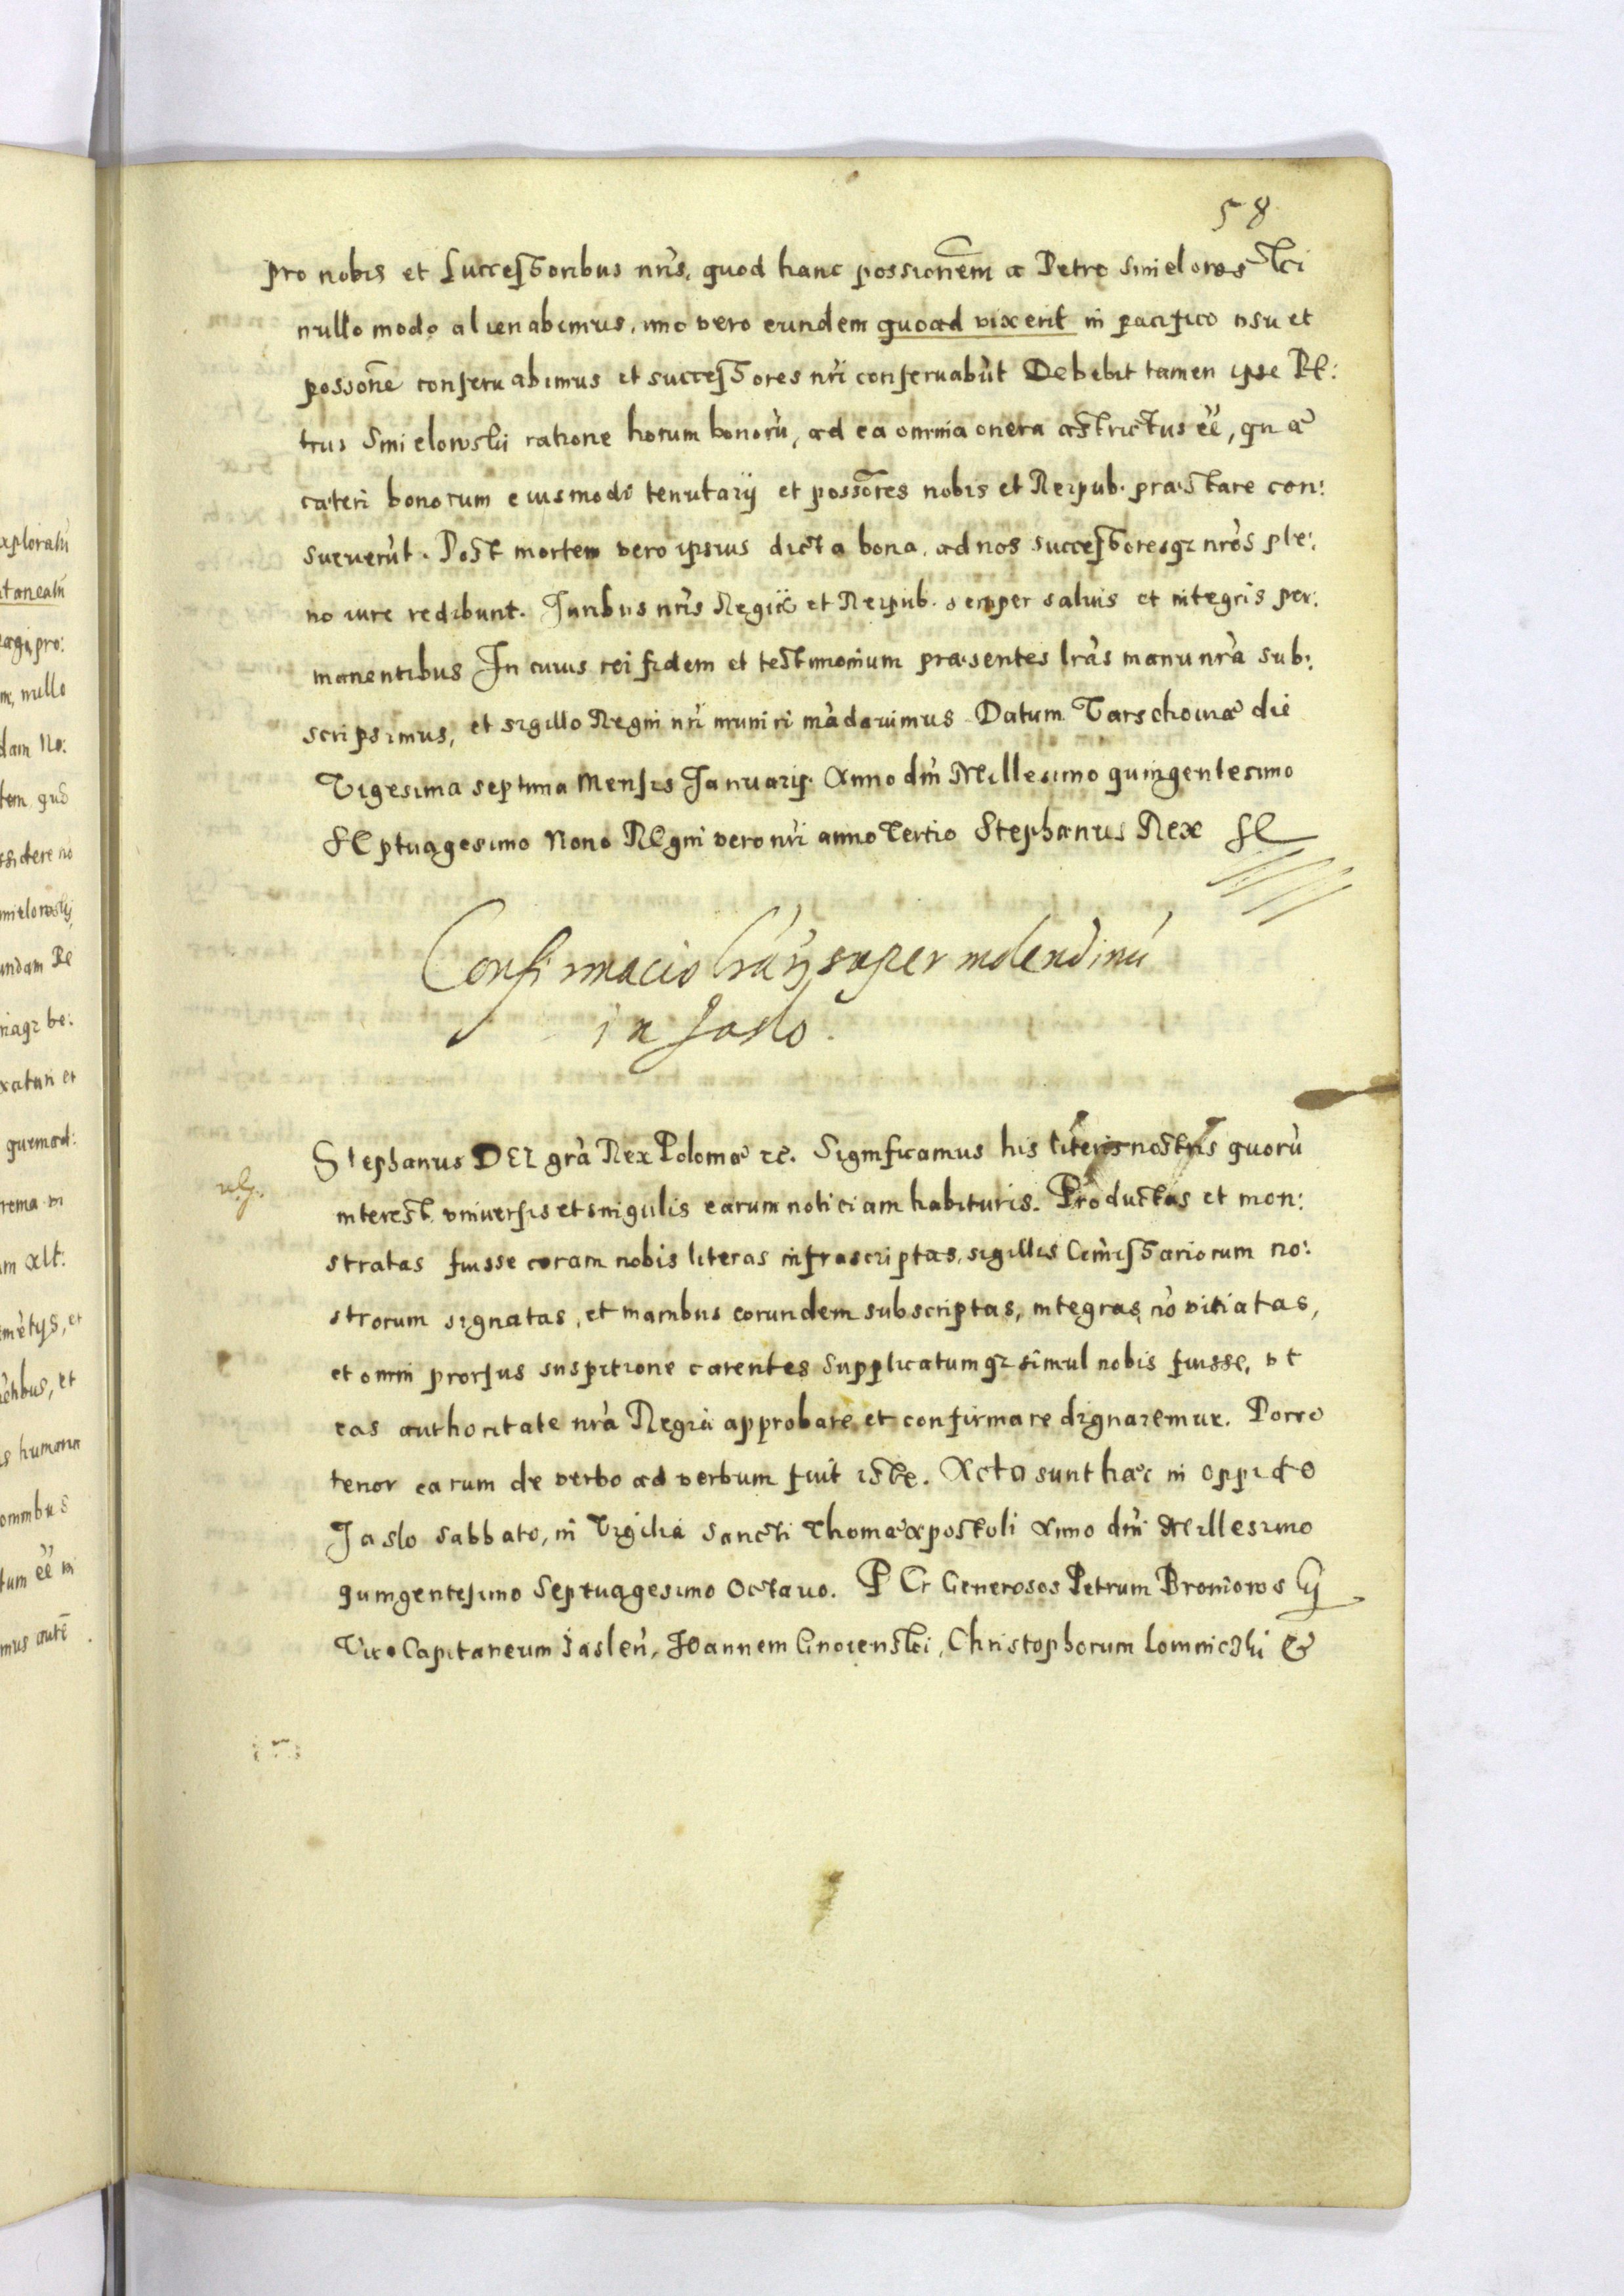 58
pro nobis et Successoribus nris, quod hanc possionem a Petro Smielowski
nullo modo alienabimus, imo vero eundem quoad vixerit in pacifico usu et
possone conseruabimus et successores nri conseruabut Debebit tamen ipse Pe:
trus Smielowskii ratione horum bonoru, ad ea omnia onera astrictus ee, quæ
cæteri bonorum eiusmodi tenutarij et possores nobis et Reipub. præstare con:
sueuerut. Post mortem vero ipsius dicta bona, ad nos successoresq; nros ple:
no iure redibunt. Iuribus nris Regiis et Reipub. semper saluis et integris per:
manentibus In cuius rei fidem et testimonium præsentes lras manu nra sub:
scripsimus, et sigillo Regni nri muniri madauimus Datum Varschouiæ die
Vigesima septima Mensis Ianuarij. Anno dni Millesimo quingentesimo
SEptuagesimo Nono REgni vero nri anno Tertio Stephanus Rex
Confirmacio lrarum super molendinu
in Jaslo.
Stephanus DEI gra Rex Poloniæ etc. Significamus his literis nostris quoru
interest vniuersis et singulis earum noticiam habituris. Productas et mon:
stratas fuisse coram nobis literas infrascriptas, sigillis Comissariorum no:
strorum signatas, et manibus eorundem subscriptas, integras, no vitiatas,
et omni prorsus suspitione carentes Supplicatumq; simul nobis fuisse, vt
eas authoritate nra Regia approbare et confirmare dignaremur. Porro
tenor earum de verbo ad verbum fuit iste. Acta sunt hæc in oppido
Jaslo sabbato, in Vigilia Sancti Thomæ Apostoli Anno dni Millesimo
quingentesimo Septuagesimo Octauo. PEr Generosos Petrum Broniowskij
Vice Capitaneum Jaslen, JOannem Gnoienski, Christophorum Lomniczki &